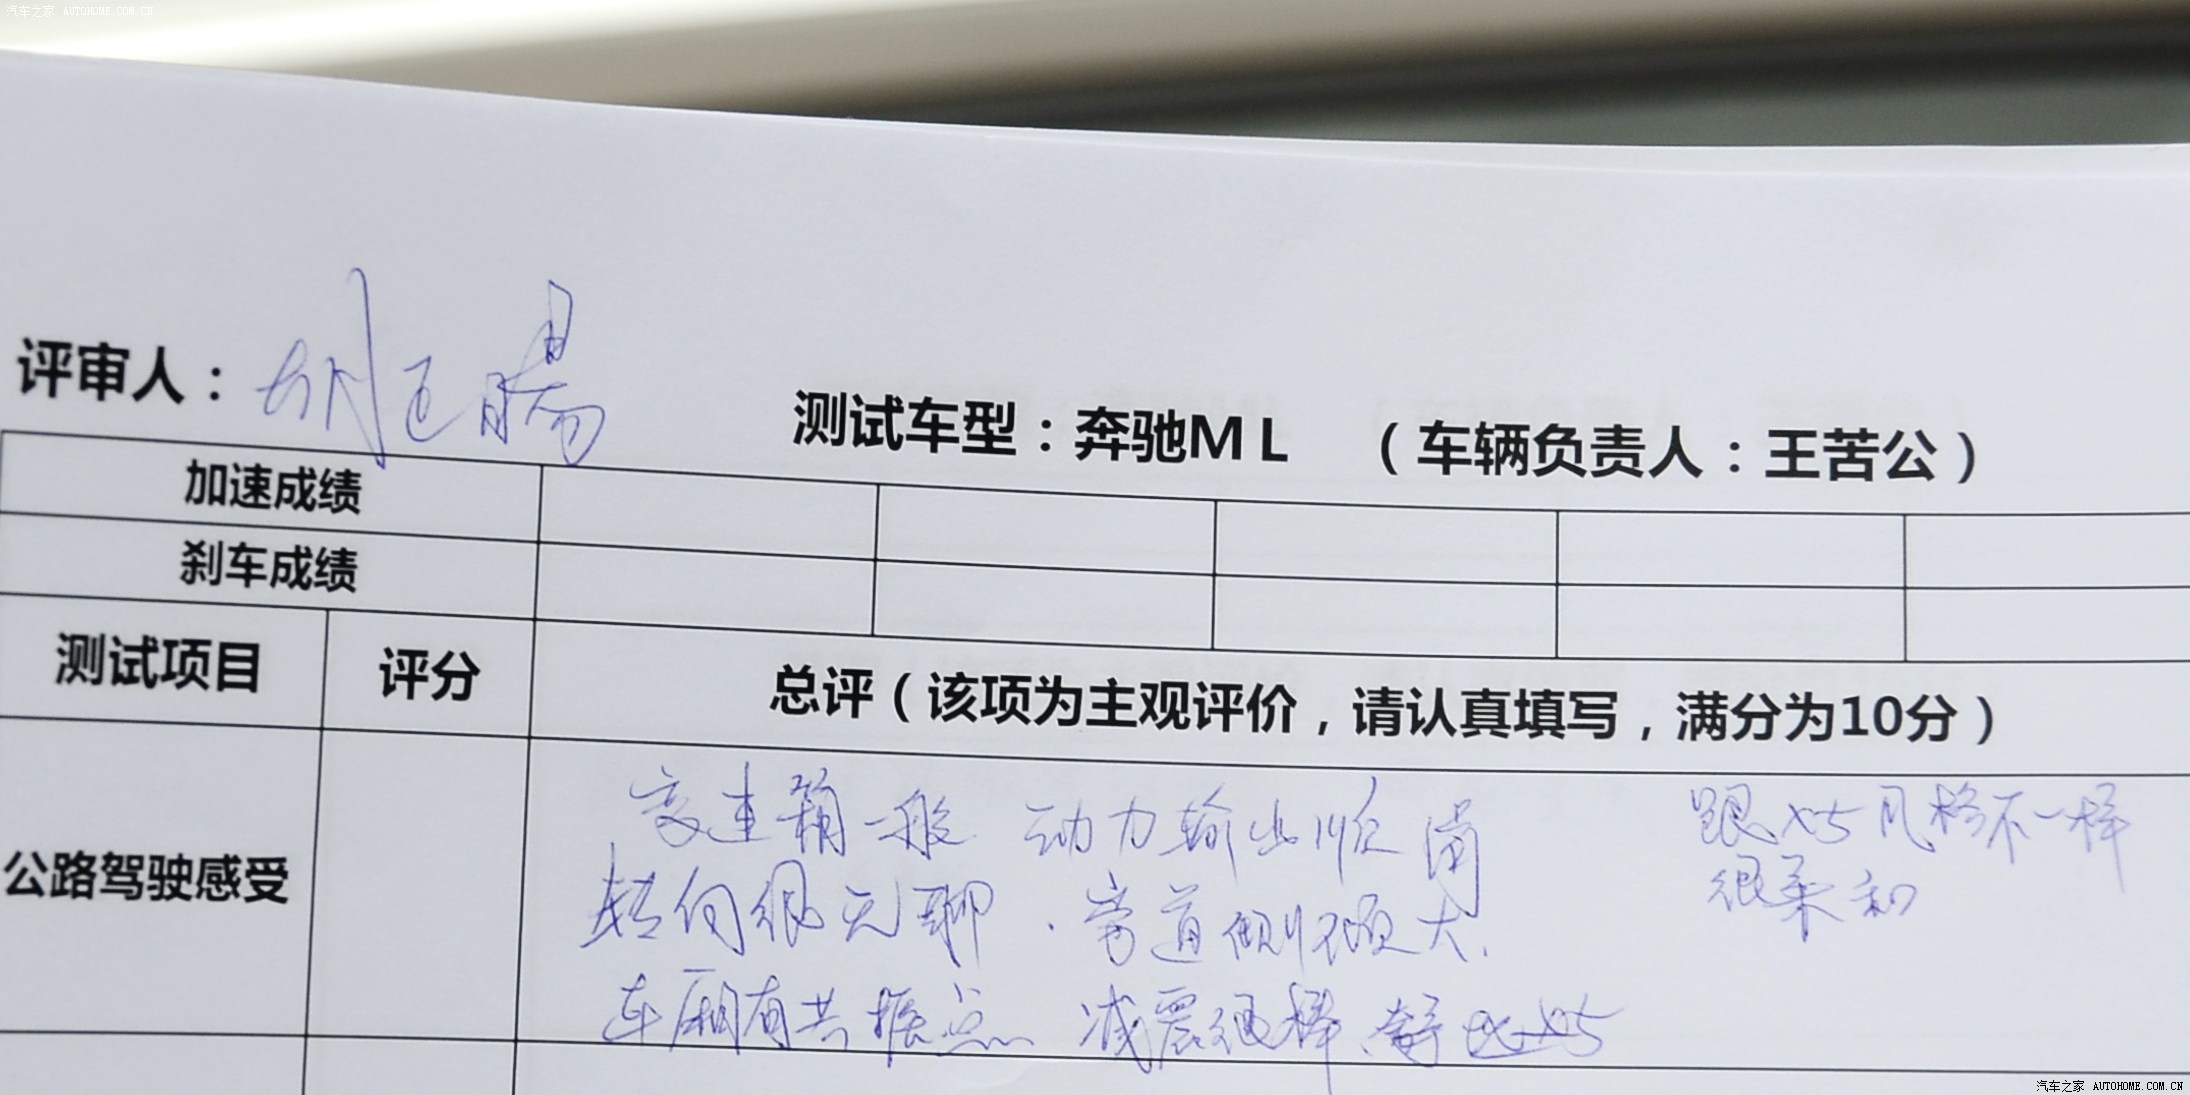 汽车之家 AUTOHOME.COM.CN
评审人：胡正暘 测试车型：奔驰ML （车辆负责人：王苦公）
加速成绩
刹车成绩
测试项目 评分 总评（该项为主观评价，请认真填写，满分为10分）
公路驾驶感受
变速箱一般 动力输出顺滑
跟X5风格不一样
很柔和
转向很无聊．弯道侧倾大．
车厢有共振点 减震很棒、
汽车之家 AUTOHOME.COM.CN